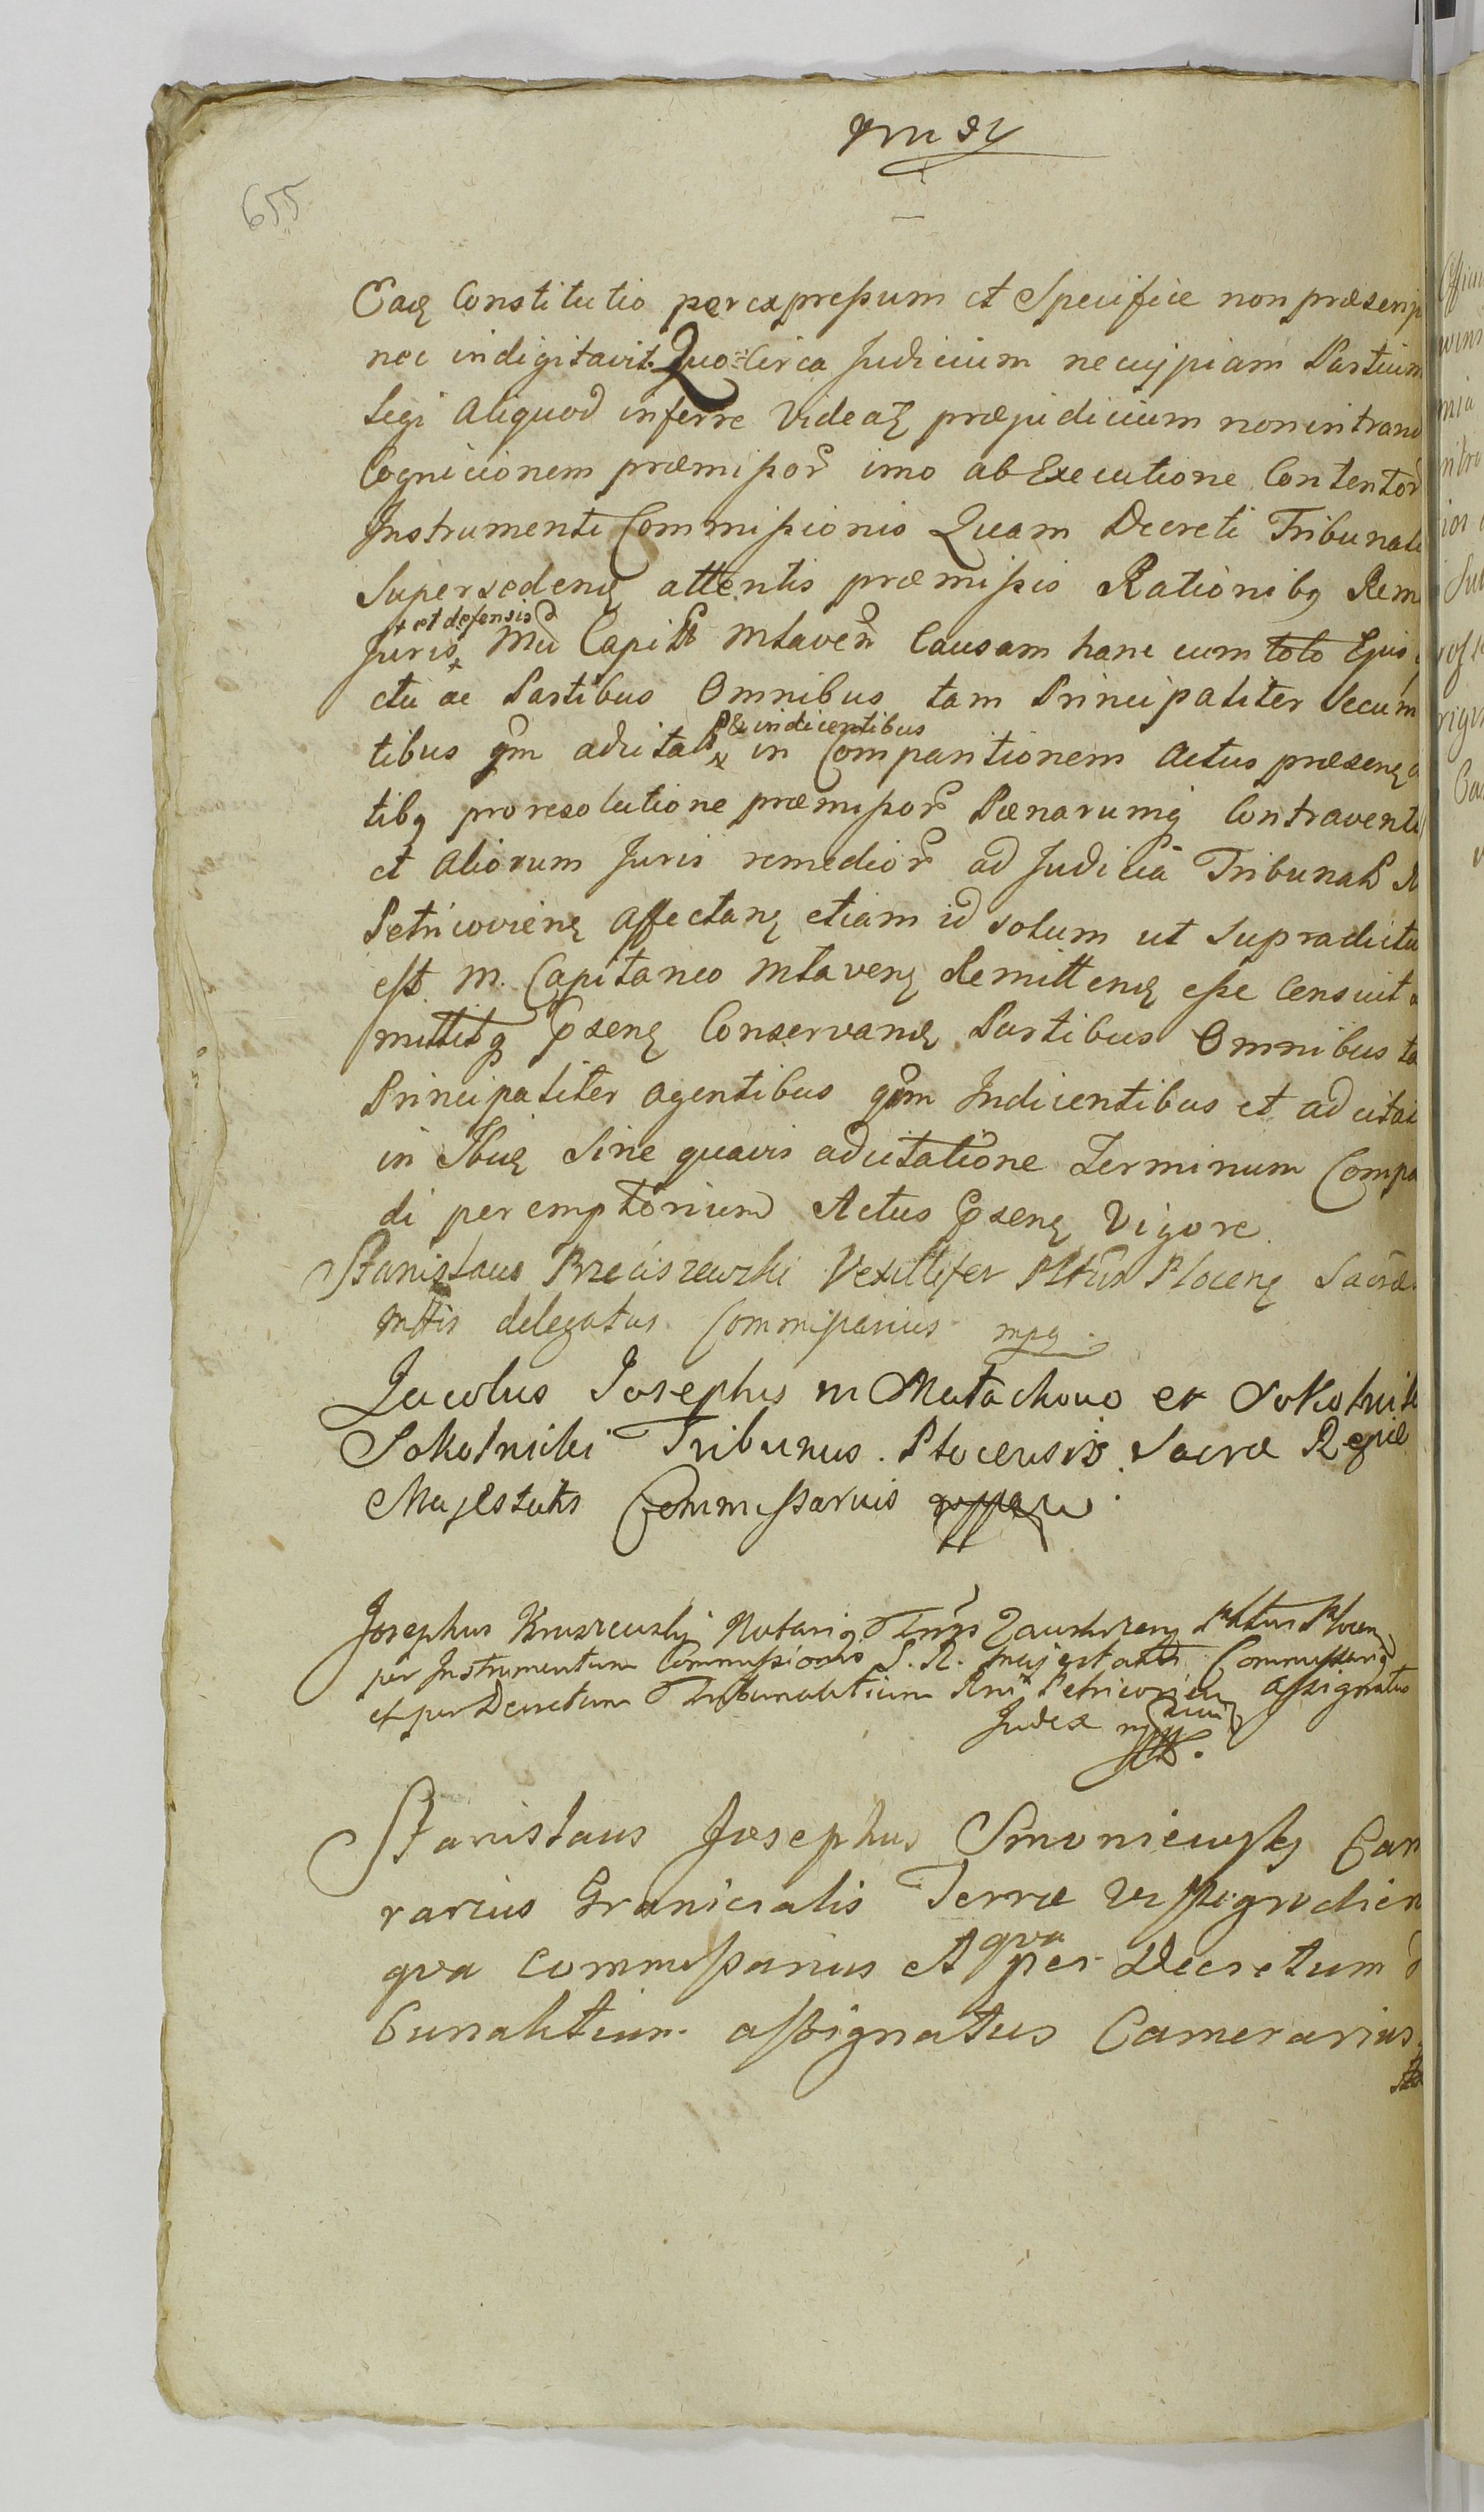 655
Eadę Constitutio per expressum et Specifice non præscrip
nec indigitavit. Quo-Circa Judicium ne cujpiam Partium
Legi aliquod inferre Videaŧ præjudicium non intrand
Cognicionem præmissor imo ab Executione Contentor
Instrumenti Commissionis Quam Decreti Tribunali
Supersedenę attentis præmissis Rationibȝ Rem
+ et defensis
Juris Mci Capitti Mlaveñ Causam hanc cum toto Ejus
ctu ac Partibus Omnibus tam Principaliter Vecum
& indicentibus
tibus qm adcitatis in Comparitionem Actus præsenę
tibȝ pro resolutione præmissor Pænarumqȝ Contraventi
et aliorum Juris remedior ad Judicia Tribunalis R
Petricovienę affectanę etiam id solum ut supradictu
est M. Capitaneo Mlavenę Remittenę esse Censuit
mittitqȝ Pxsenę Conservanę Partibus Omnibus ta
Principaliter agentibus qm Indicentibus et adcitat
in Ibuę Sine quavis adcitatione Terminum Compa
di peremptorium Actus Pxsenę Vigore
Stanislaus Vexillifer Pltus Plocenę Sacræ
Mttis delegatus Commissarius mpa
Jacobus Josephus in Małachowo et Sokołniki
Sokolnicki Tribunus Plocensis Sacræ Regiæ
Majestatis Commissarius
Josephus Kruszewski Notariȝ Pltus Plocen
per Instrumentum Commissionis S. R. Majestatis Commissariȝ
et per Decretum Tribunalitium Rni Petricovien assignatus
Judex
Stanislaus Josephus Smoniewsky Cam
rarius Granicialis Terræ Vissegrodien
qva
qva Commissarius et per Decretum
bunalitium assignatus Camerarius